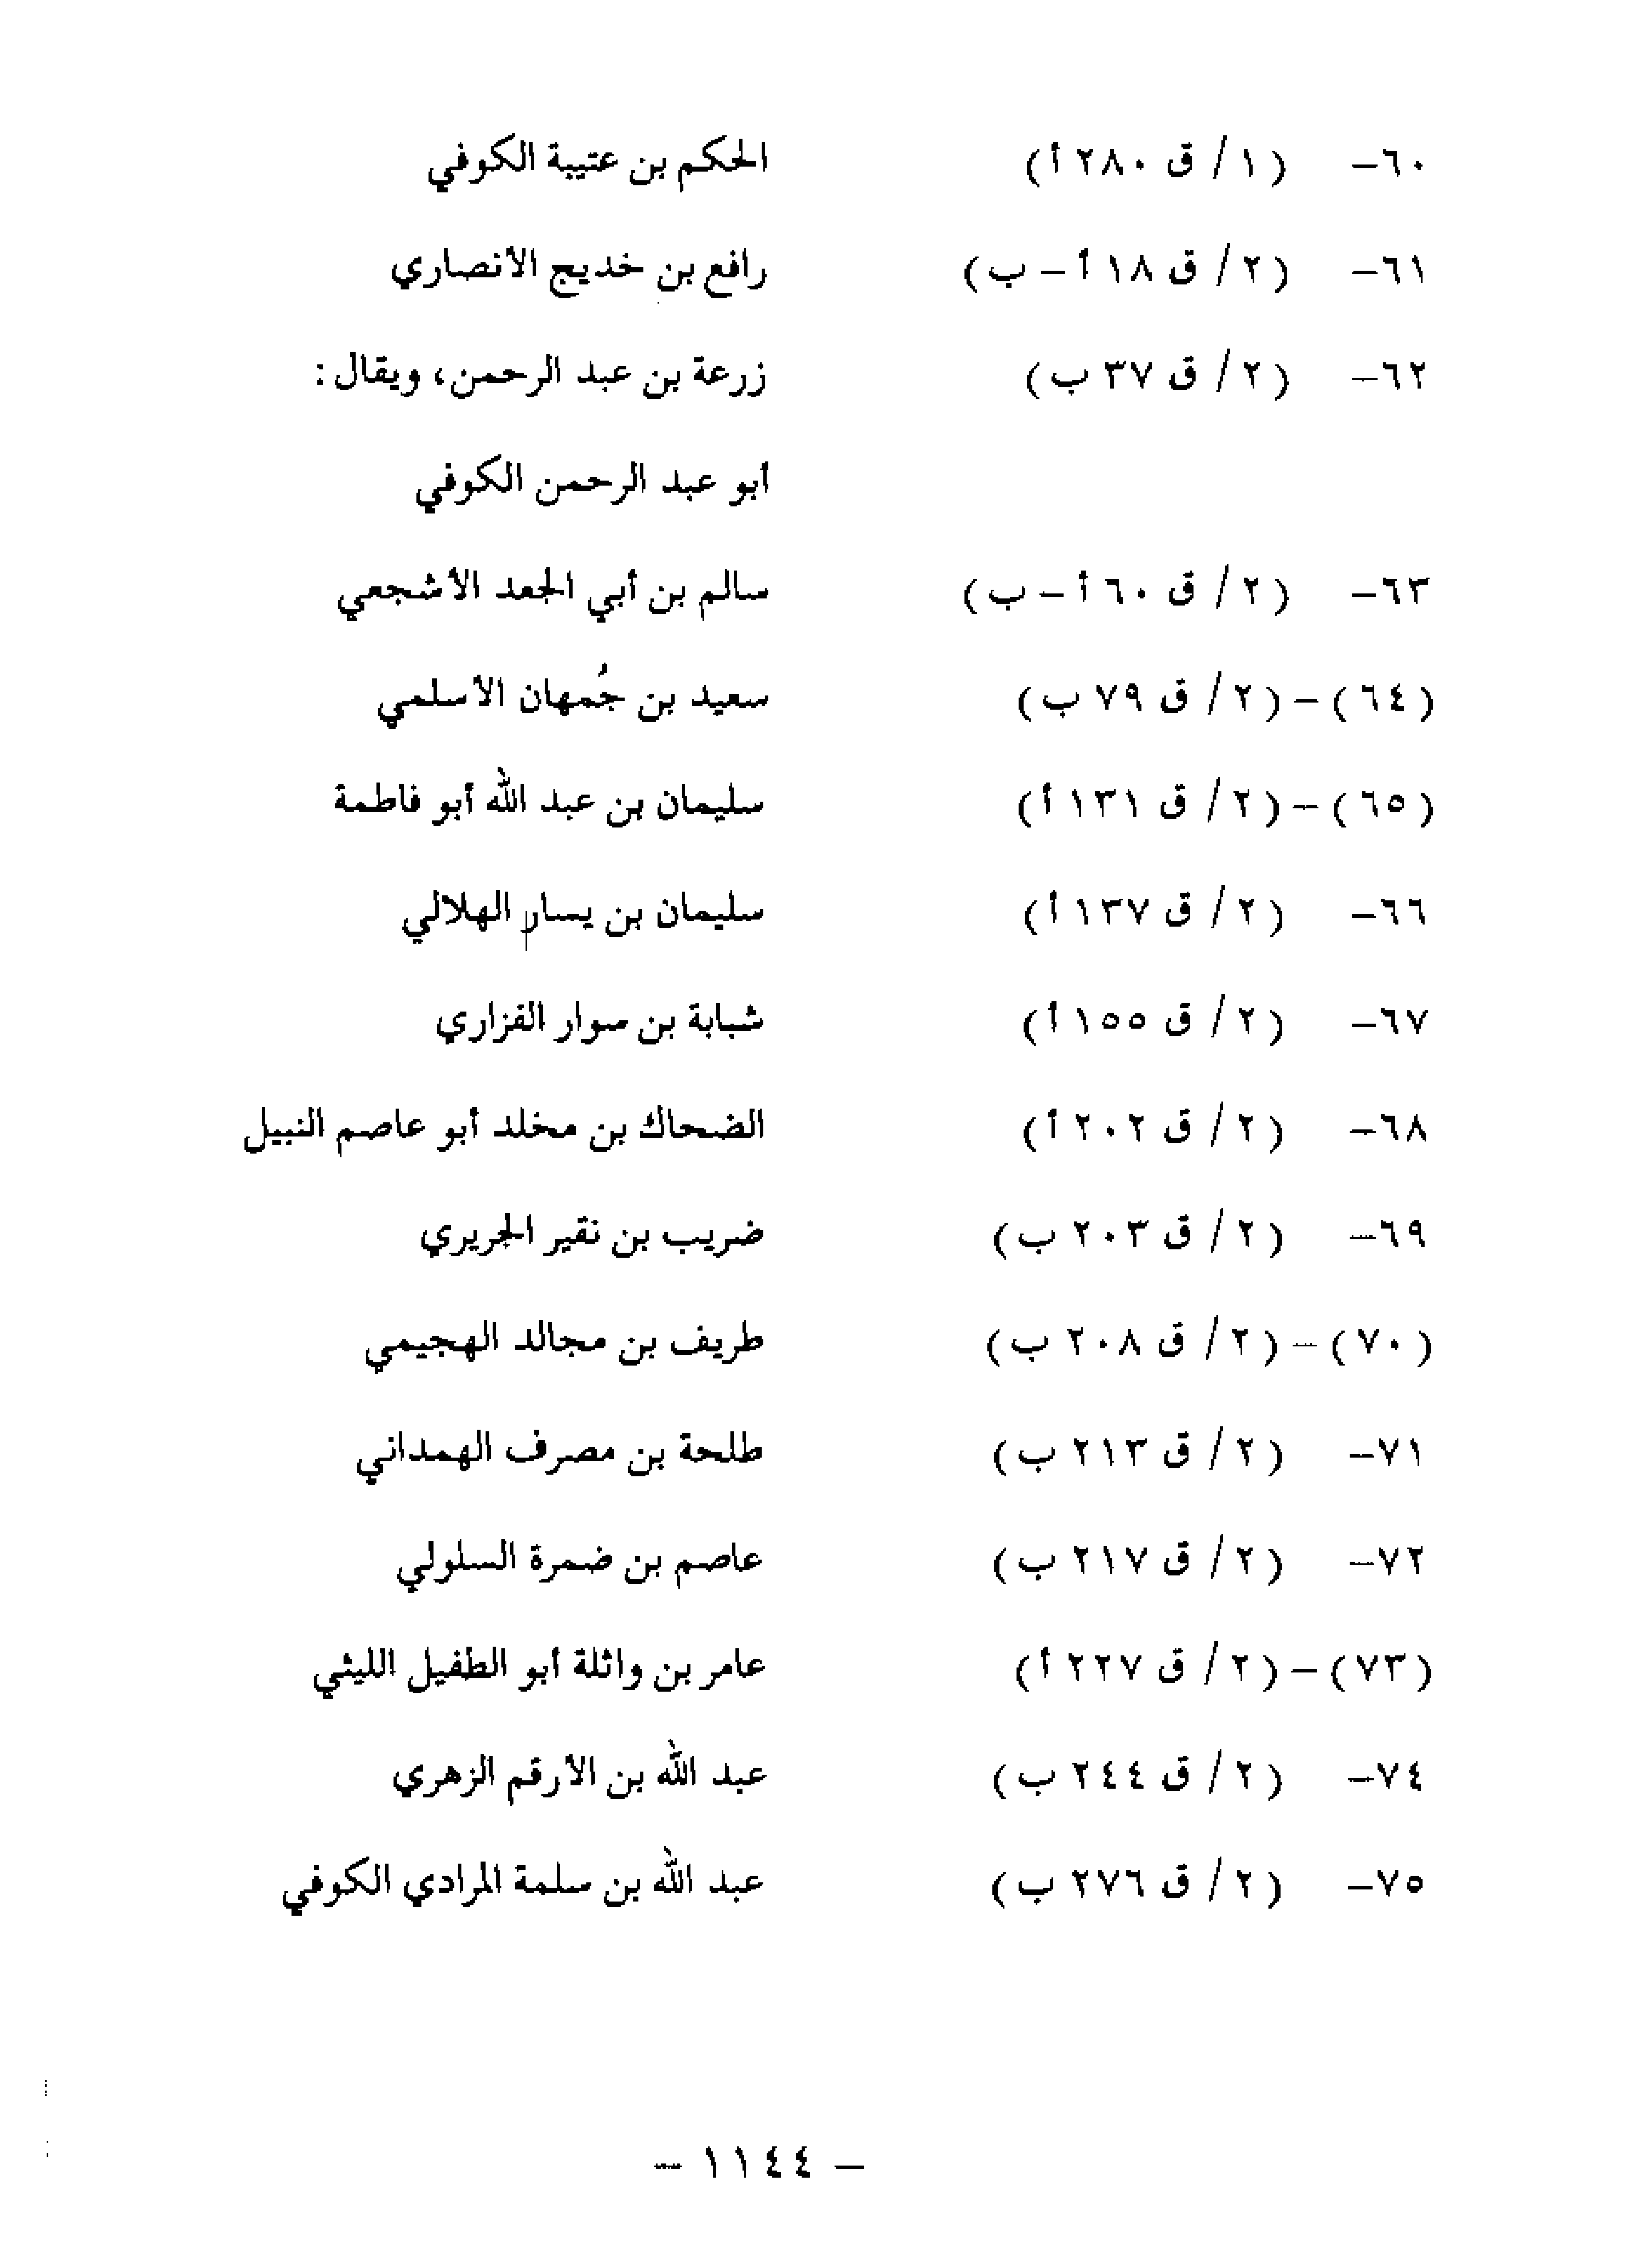 ٦٠- (١/ ق ٢٨٠ أ) الحكم بن عتيبة الكوفي
٦١- (٢/ ق ١٨ أ - ب) رافع بن خديج الأنصاري
٦٢- (٢/ ق ٣٧ ب) زرعة بن عبد الرحمن، ويقال:
أبو عبد الرحمن الكوفي
٦٣- (٢/ ق ٦٠ أ - ب) سالم بن أبي الجعد الأشجعي
(٦٤) - (٢/ ق ٧٩ ب) سعيد بن جُمهان الأسلمي
(٦٥) - (٢/ ق ١٣١ أ) سليمان بن عبد الله أبو فاطمة
٦٦- (٢/ ق ١٣٧ أ) سليمان بن يسار الهلالي
٦٧- (٢/ ق ١٥٥ أ) شبابة بن سوار الفزاري
٦٨- (٢/ ق ٢٠٢ أ) الضحاك بن مخلد أبو عاصم النبيل
٦٩- (٢/ ق ٢٠٣ ب) ضريب بن نقير الجريري
(٧٠) - (٢/ ق ٢٠٨ ب) طريف بن مجالد الهجيمي
٧١- (٢/ ق ٢١٣ ب) طلحة بن مصرف الهمداني
٧٢- (٢/ ق ٢١٧ ب) عاصم بن ضمرة السلولي
(٧٣) - (٢/ ق ٢٢٧ أ) عامر بن واثلة أبو الطفيل الليثي
٧٤- (٢/ ق ٢٤٤ ب) عبد الله بن الأرقم الزهري
٧٥- (٢/ ق ٢٧٦ ب) عبد الله بن سلمة المرادي الكوفي
- ١١٤٤ -